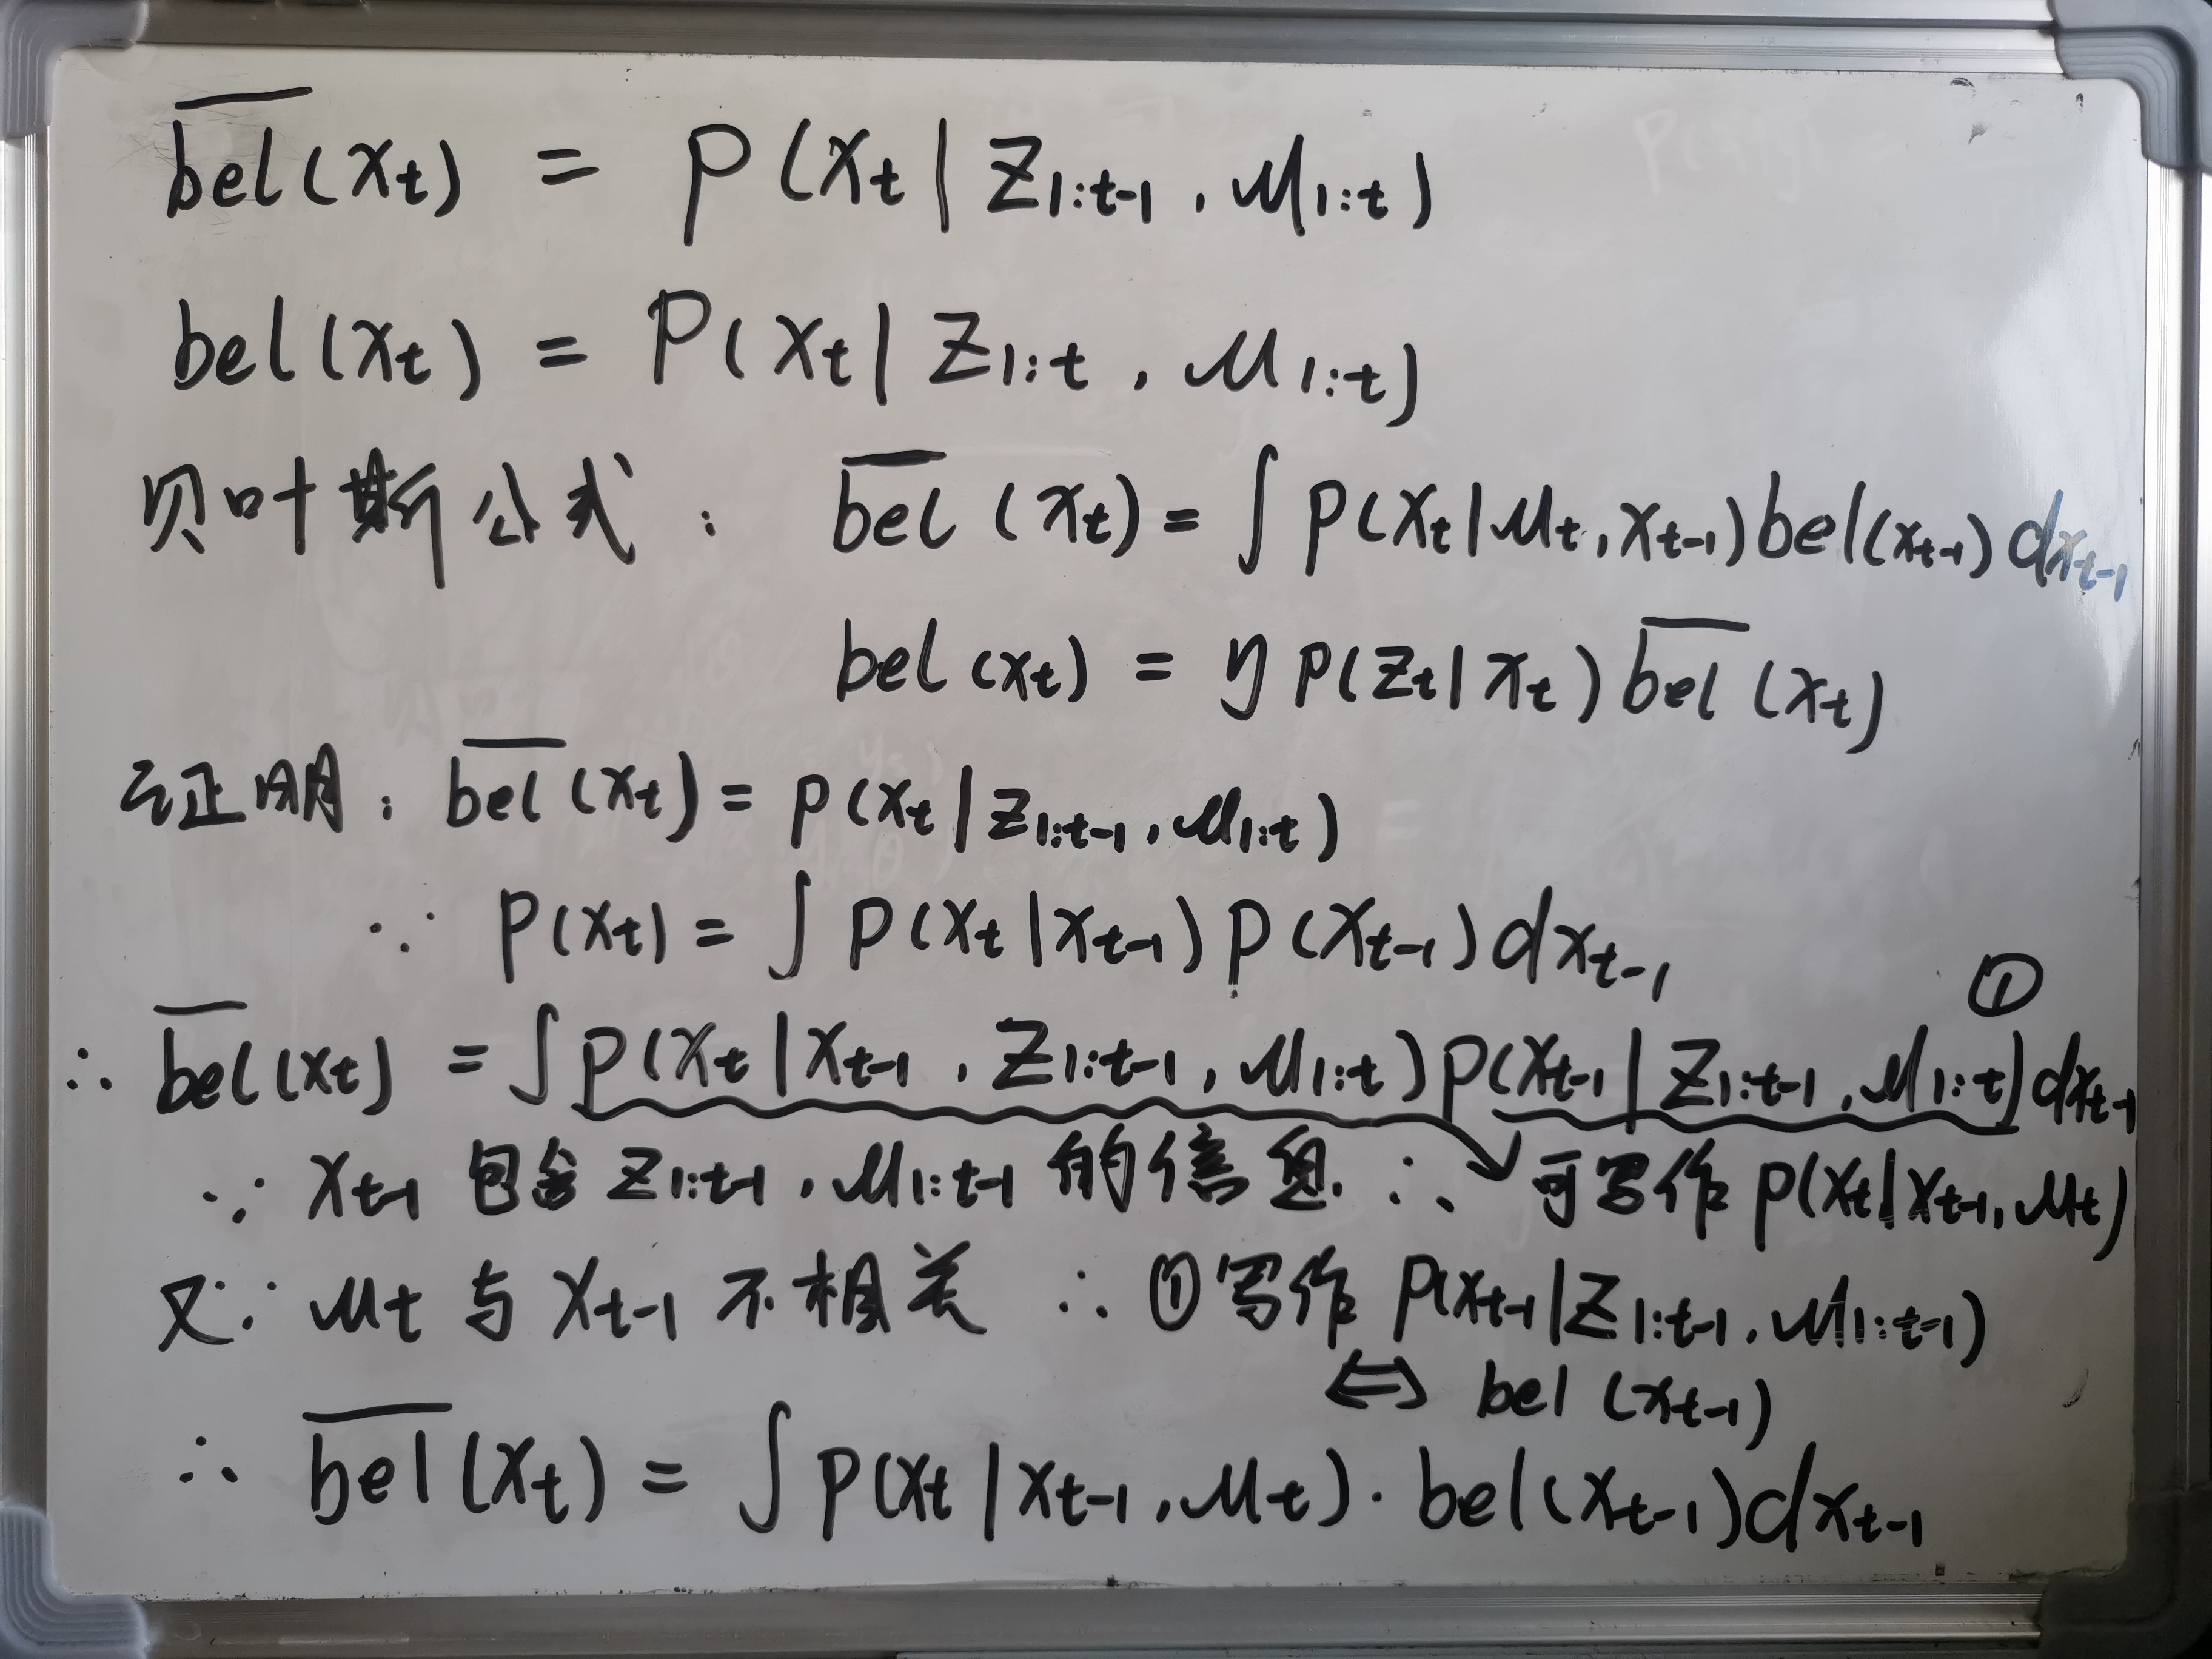 bel̅(xt) = p(xt | Z1:t-1, u1:t)
bel(xt) = P(xt | Z1:t, u1:t)
贝叶斯公式: bel̅(xt) = ∫ p(xt | ut, xt-1) bel(xt-1) dxt-1
bel(xt) = η p(zt | xt) bel̅(xt)
证明: bel̅(xt) = p(xt | z1:t-1, u1:t)
∵ p(xt) = ∫ p(xt | xt-1) p(xt-1) dxt-1
①
∴ bel̅(xt) = ∫ p(xt | xt-1, Z1:t-1, u1:t) p(xt-1 | Z1:t-1, u1:t) dxt-1
∵ xt-1 包含 Z1:t-1, u1:t-1 的信息 ∴ 可写作 p(xt | xt-1, ut)
又∵ ut 与 xt-1 不相关 ∴ ①写作 p(xt-1 | Z1:t-1, u1:t-1)
⇔ bel(xt-1)
∴ bel̅(xt) = ∫ p(xt | xt-1, ut) · bel(xt-1) dxt-1